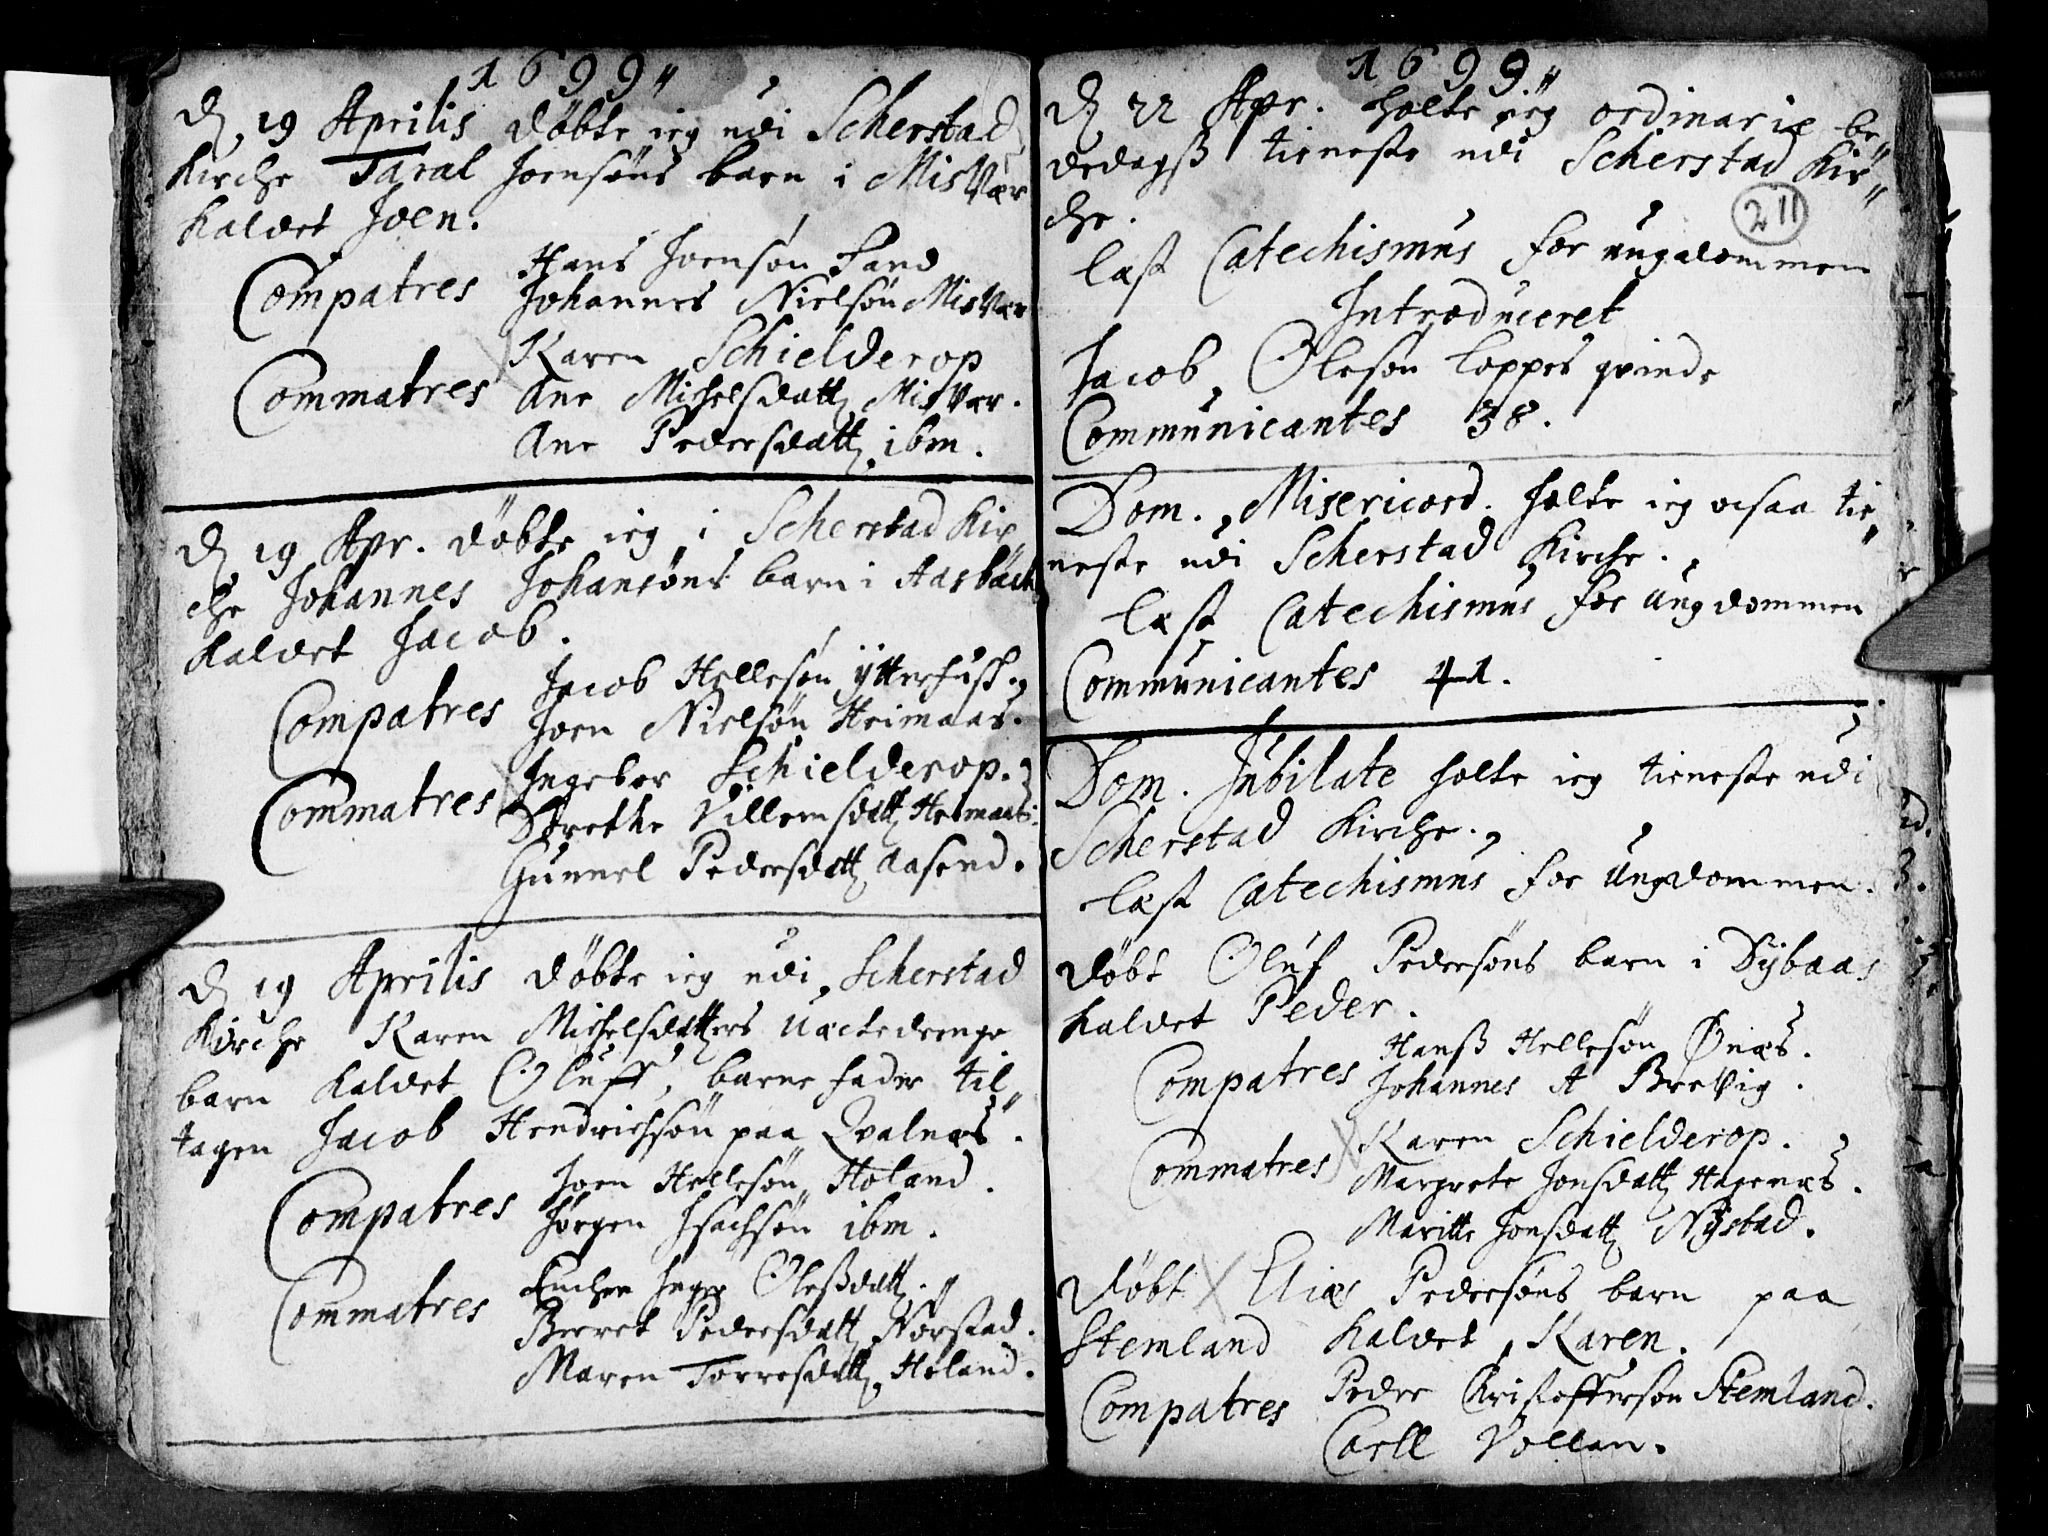 1699"
D. 19 Aprilis døbte ieg udi Scherstad
Kirche Taral Joensøns barn i Misvær
kaldet Joen.
Compatres Hans Joensøn Sand
Johannes Nielsøn Misvær
Commatres Karen Schielderop
Ane Michelsdatt Misvær.
Ane Pedersdatt ibm.
D. 19 Apr. døbte ieg i Scherstad Kir
che Johannes Johansøns barn i Aasbach
kaldet Jacob.
Compatres Jacob Hellesøn ÿtterhuß.
Joen Nielsøn Heimaas.
Commatres Ingebor Schielderop.
Dorethe Villemsdatt Heimaas.
Gunnel Pedersdatt Aasend.
D. 19 Aprilis døbte ieg udi Scherstad
Kirche Karen Michelsdatters uæctedrenge
barn kaldet Oluff, barne fader til"
tagen Jacob Hendrichsøn paa Qvalnæs.
Compatres Joen Hellesøn Høland.
Jørgen Isachsøn ibm.
Commatres Encken Inger Oleßdatt.
Berret Pedersdatt Nørstad.
Maren Torresdatt Høland.
1699"
D. 22 Apr. holte ieg ordinarie be"
dedagß tieneste udi Scherstad Kir"
che.
211
læst Catechismus for ungdommen
Introduceret
Jacob Olesøn Loppes qvinde
Communicantes 38.
Dom. Misericord. holte ieg ocsaa tie"
neste udi Scherstad Kirche.
læst Catechismus for Ungdommen
Communicantes 41.
Dom. Jubilate holte ieg tieneste udi
Scherstad Kirche.
læst Catechismus for Ungdommen.
døbt Oluf Pedersøns barn i Dÿbaas
kaldet Peder.
Compatres Hanß Hellesøn Ønæs.
Johannes A Brevig.
Commatres Karen Schielderop.
Margrete Jonsdatt Hagenæs.
Maritte Jonsdatt Nÿstad.
døbt Elias Pedersøns barn paa
Stemland kaldet Karen.
Compatres Peder Christoffersøn Stemland.
Carll Vollan.